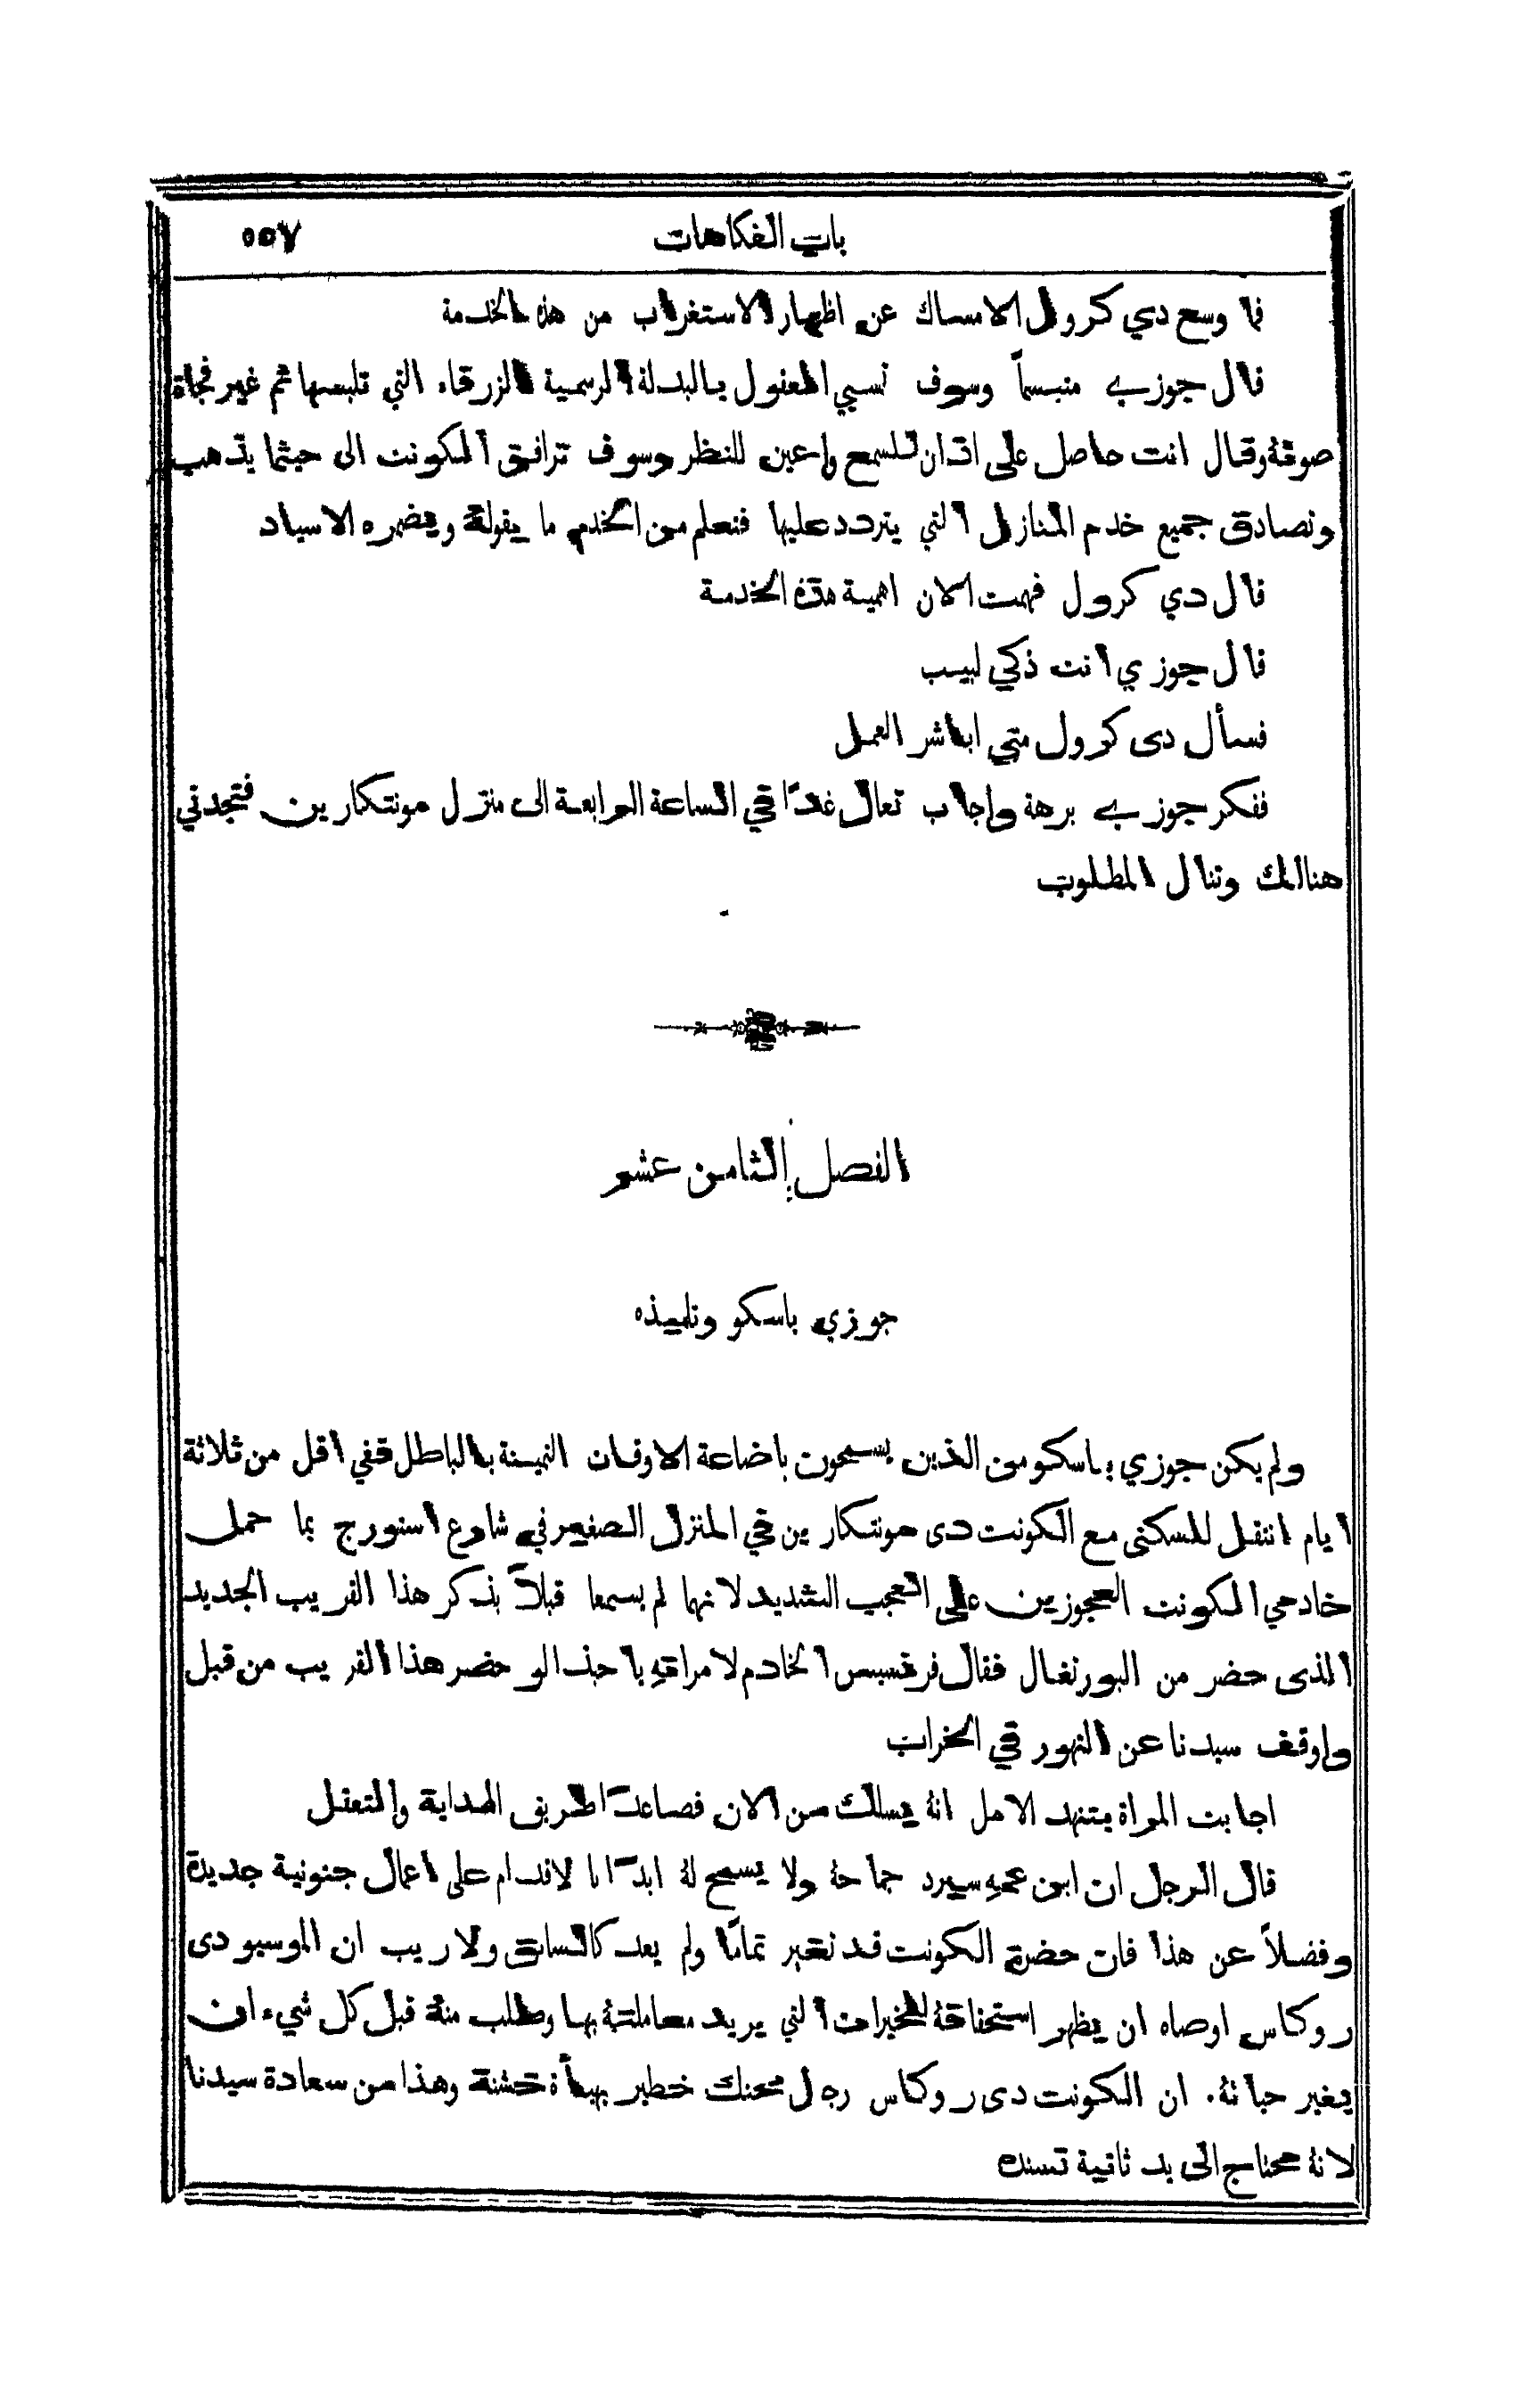 باب الفكاهات ٥٥٧
فما وسع دي كرول الامساك عن اظهار الاستغراب من هذه الخدمة
قال جوزي متبسماً وسوف تسبي العقول بالبدلة الرسمية الزرقاء التي تلبسها ثم غير فجاة
صوته وقال انت حاصل على اذان للسمع واعين للنظر وسوف ترافق الكونت الى حيثما يذهب
وتصادق جميع خدم المنازل التي يتردد عليها فتعلم من الخدم ما يقولة ويضمره الاسياد
قال دي كرول فهمت الان اهمية هذه الخدمة
قال جوزي انت ذكي لبيب
فسأل دي كرول متى اباشر العمل
ففكر جوزي برهة واجاب تعال غدًا في الساعة الرابعة الى منزل مونتكارين فتجدني
هنالك وتنال المطلوب
الفصل الثامن عشر
جوزي باسكو وتلميذه
ولم يكن جوزي باسكو من الذين يسمحون باضاعة الاوقات الثمينة بالباطل ففي اقل من ثلاثة
ايام انتقل للسكنى مع الكونت دي مونتكارين في المنزل الصغير في شارع استورج مما حمل
خادمي الكونت العجوزين على التعجب الشديد لانهما لم يسمعا قبلاً بذكر هذا القريب الجديد
الذي حضر من البورتغال فقال فرنسيس الخادم لامراته يا حبذا لو حضر هذا القريب من قبل
واوقف سيدنا عن التهور في الخراب
اجابت المراة بتنهد الامل انهُ يسلك من الان فصاعدًا طريق الهداية والتعقل
قال الرجل ان ابن عمهِ سيرد جماحهُ ولا يسمح لهُ ابدًا بالاقدام على اعمال جنونية جديدة
وفضلاً عن هذا فان حضرة الكونت قد تغير تمامًا ولم يعد كالسابق ولا ريب ان الموسيو دي
روكاس اوصاه ان يظهر استحقاقهُ للخيرات التي يريد معاملتهُ بها وطلب منهُ قبل كل شيء ان
يغير حياتهُ. ان الكونت دي روكاس رجل محنك خطير بهيأة خشنة وهذا من سعادة سيدنا
لانهُ محتاج الى يد ثانية تسنده